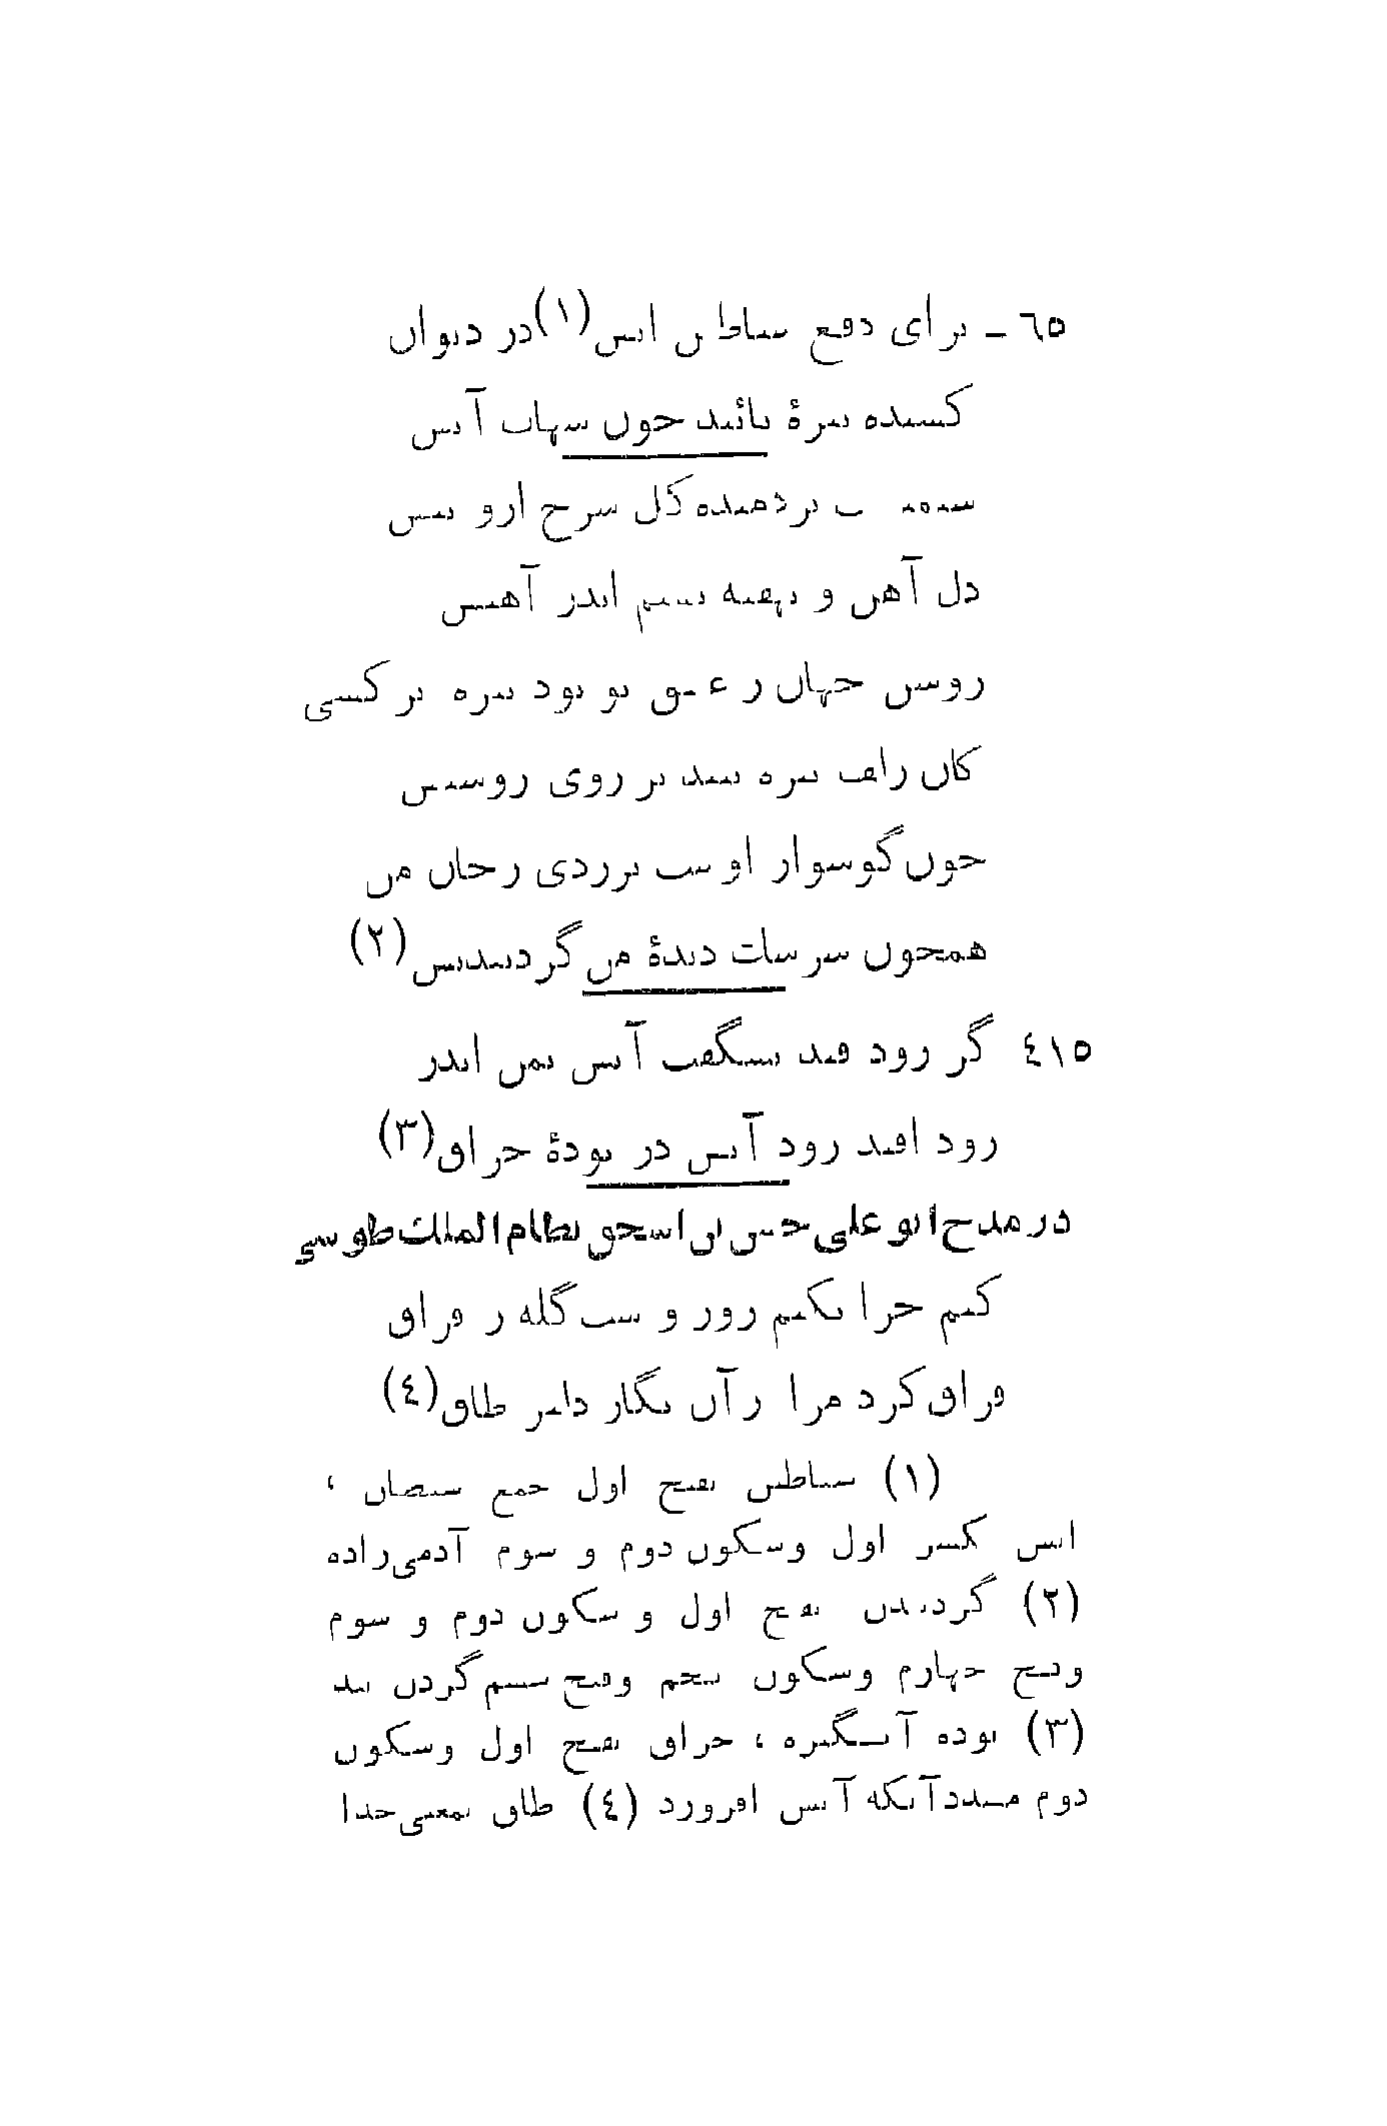 ٦٥ – برای دفع شیاطین انس(۱) در دیوان
کشیده تیرهٔ تائید چون شهاب آتش
بر دمیده گل سرخ ازو
دل آهن و نهفته بسیم اندر آهنش
روشن جهان ز عشق تو بود تیره بر کسی
کان زلف تیره شد بر روی روشنش
چون گوشوار اوست بزردی رخان من
همچون سرشات دیدهٔ من گردنبندنش(۲)
٤١٥ گر زود فتد شگفت آتش بمن اندر
زود افتد زود آتش در تودهٔ حراق(۳)
در مدح ابو علی حسن بن اسحق نظام الملك طوسی
کنم چرا نکنم روز و شب گله ز فراق
فراق کرد مرا زآن نگار دلبر طاق(٤)
(۱) شیاطین بفتح اول جمع شیطان ،
انس بکسر اول وسکون دوم و سوم آدمی‌زاده
(۲) بفتح اول و سکون دوم و سوم
وفتح چهارم وسکون پنجم وفتح ششم گردن بند
(۳) توده آتشگیره ، حراق بفتح اول وسکون
دوم مشدد آنکه آتش افروزد (٤) طاق بمعنی جدا